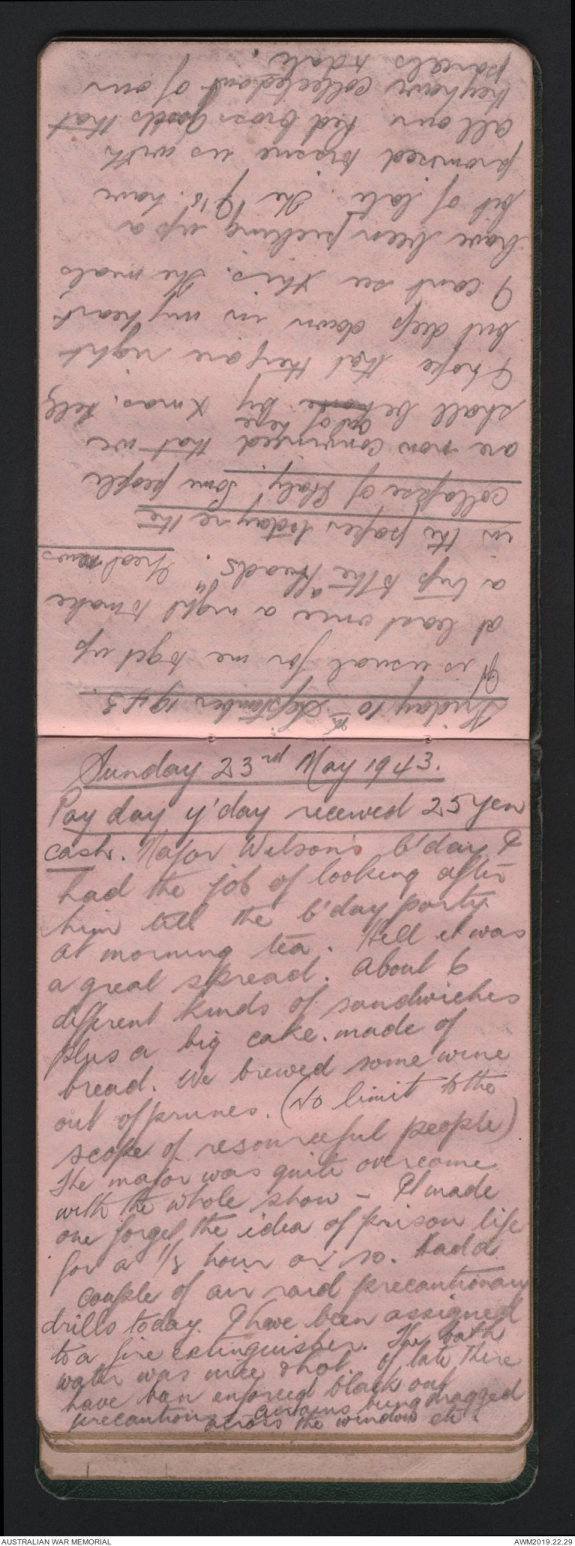 Friday 10th September 1943.
It is usual for me to get up
at least once a night to make
a trip to the "heads". Great news
in the paper today re the
collapse of Italy. Some people
are now convinced that we
shall be out of here by Xmas. Well
I hope that they are right
but deep down in my heart
I can't see this. The meals
have been picking up a
bit of late. The J's have
promised to issue us with
all our Red Cross goods that
they have collected out of our
parcels to date.
Sunday 23rd May 1943.
Pay day y'day received 25 Yen
cash. Major Wilson's b'day &
had the job of looking after
him till the b'day party
at morning tea. Well it was
a great spread. About 6
different kinds of sandwiches
plus a big cake. made of
bread. We brewed some wine
out of prunes. (No limit to the
scope of resourceful people)
The major was quite overcome
with the whole show - It made
one forget the idea of prison life
for a 1/2 hour or so. Had a
couple of air raid precautionary
drills today. I have been assigned
to a fire extinguisher. The bath
water was nice & hot. Of late there
have been enforced black out
precautions - curtains being dragged
across the window etc.
AUSTRALIAN WAR MEMORIAL
AWM2019.22.29